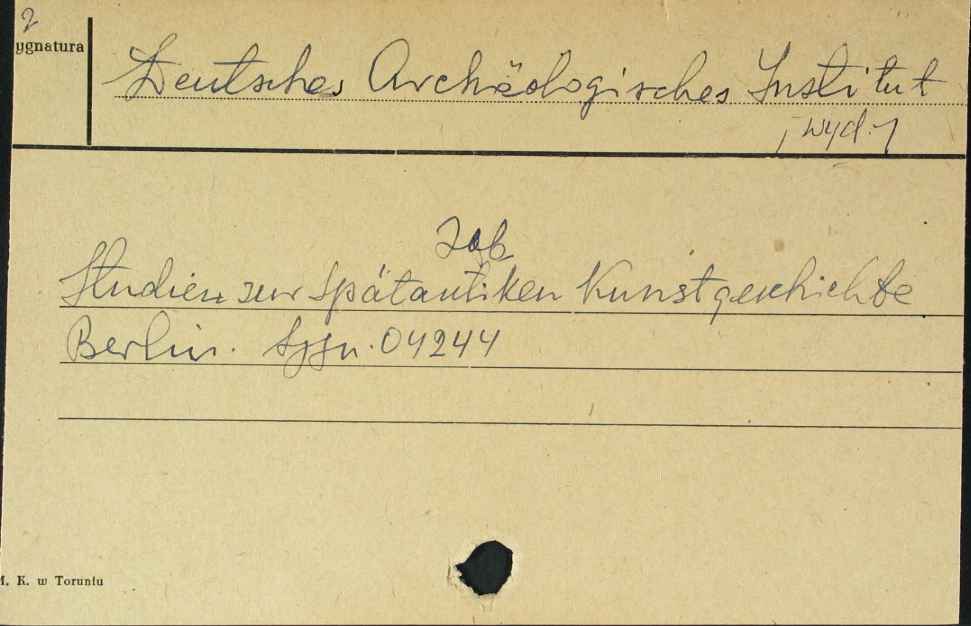 2
ygnatura
Deutsches Archäologisches Institut
, wyd.
Zob
Studien zur spätantiken Kunstgeschichte
Berlin. Sygn. 04244
M. K. w Toruniu